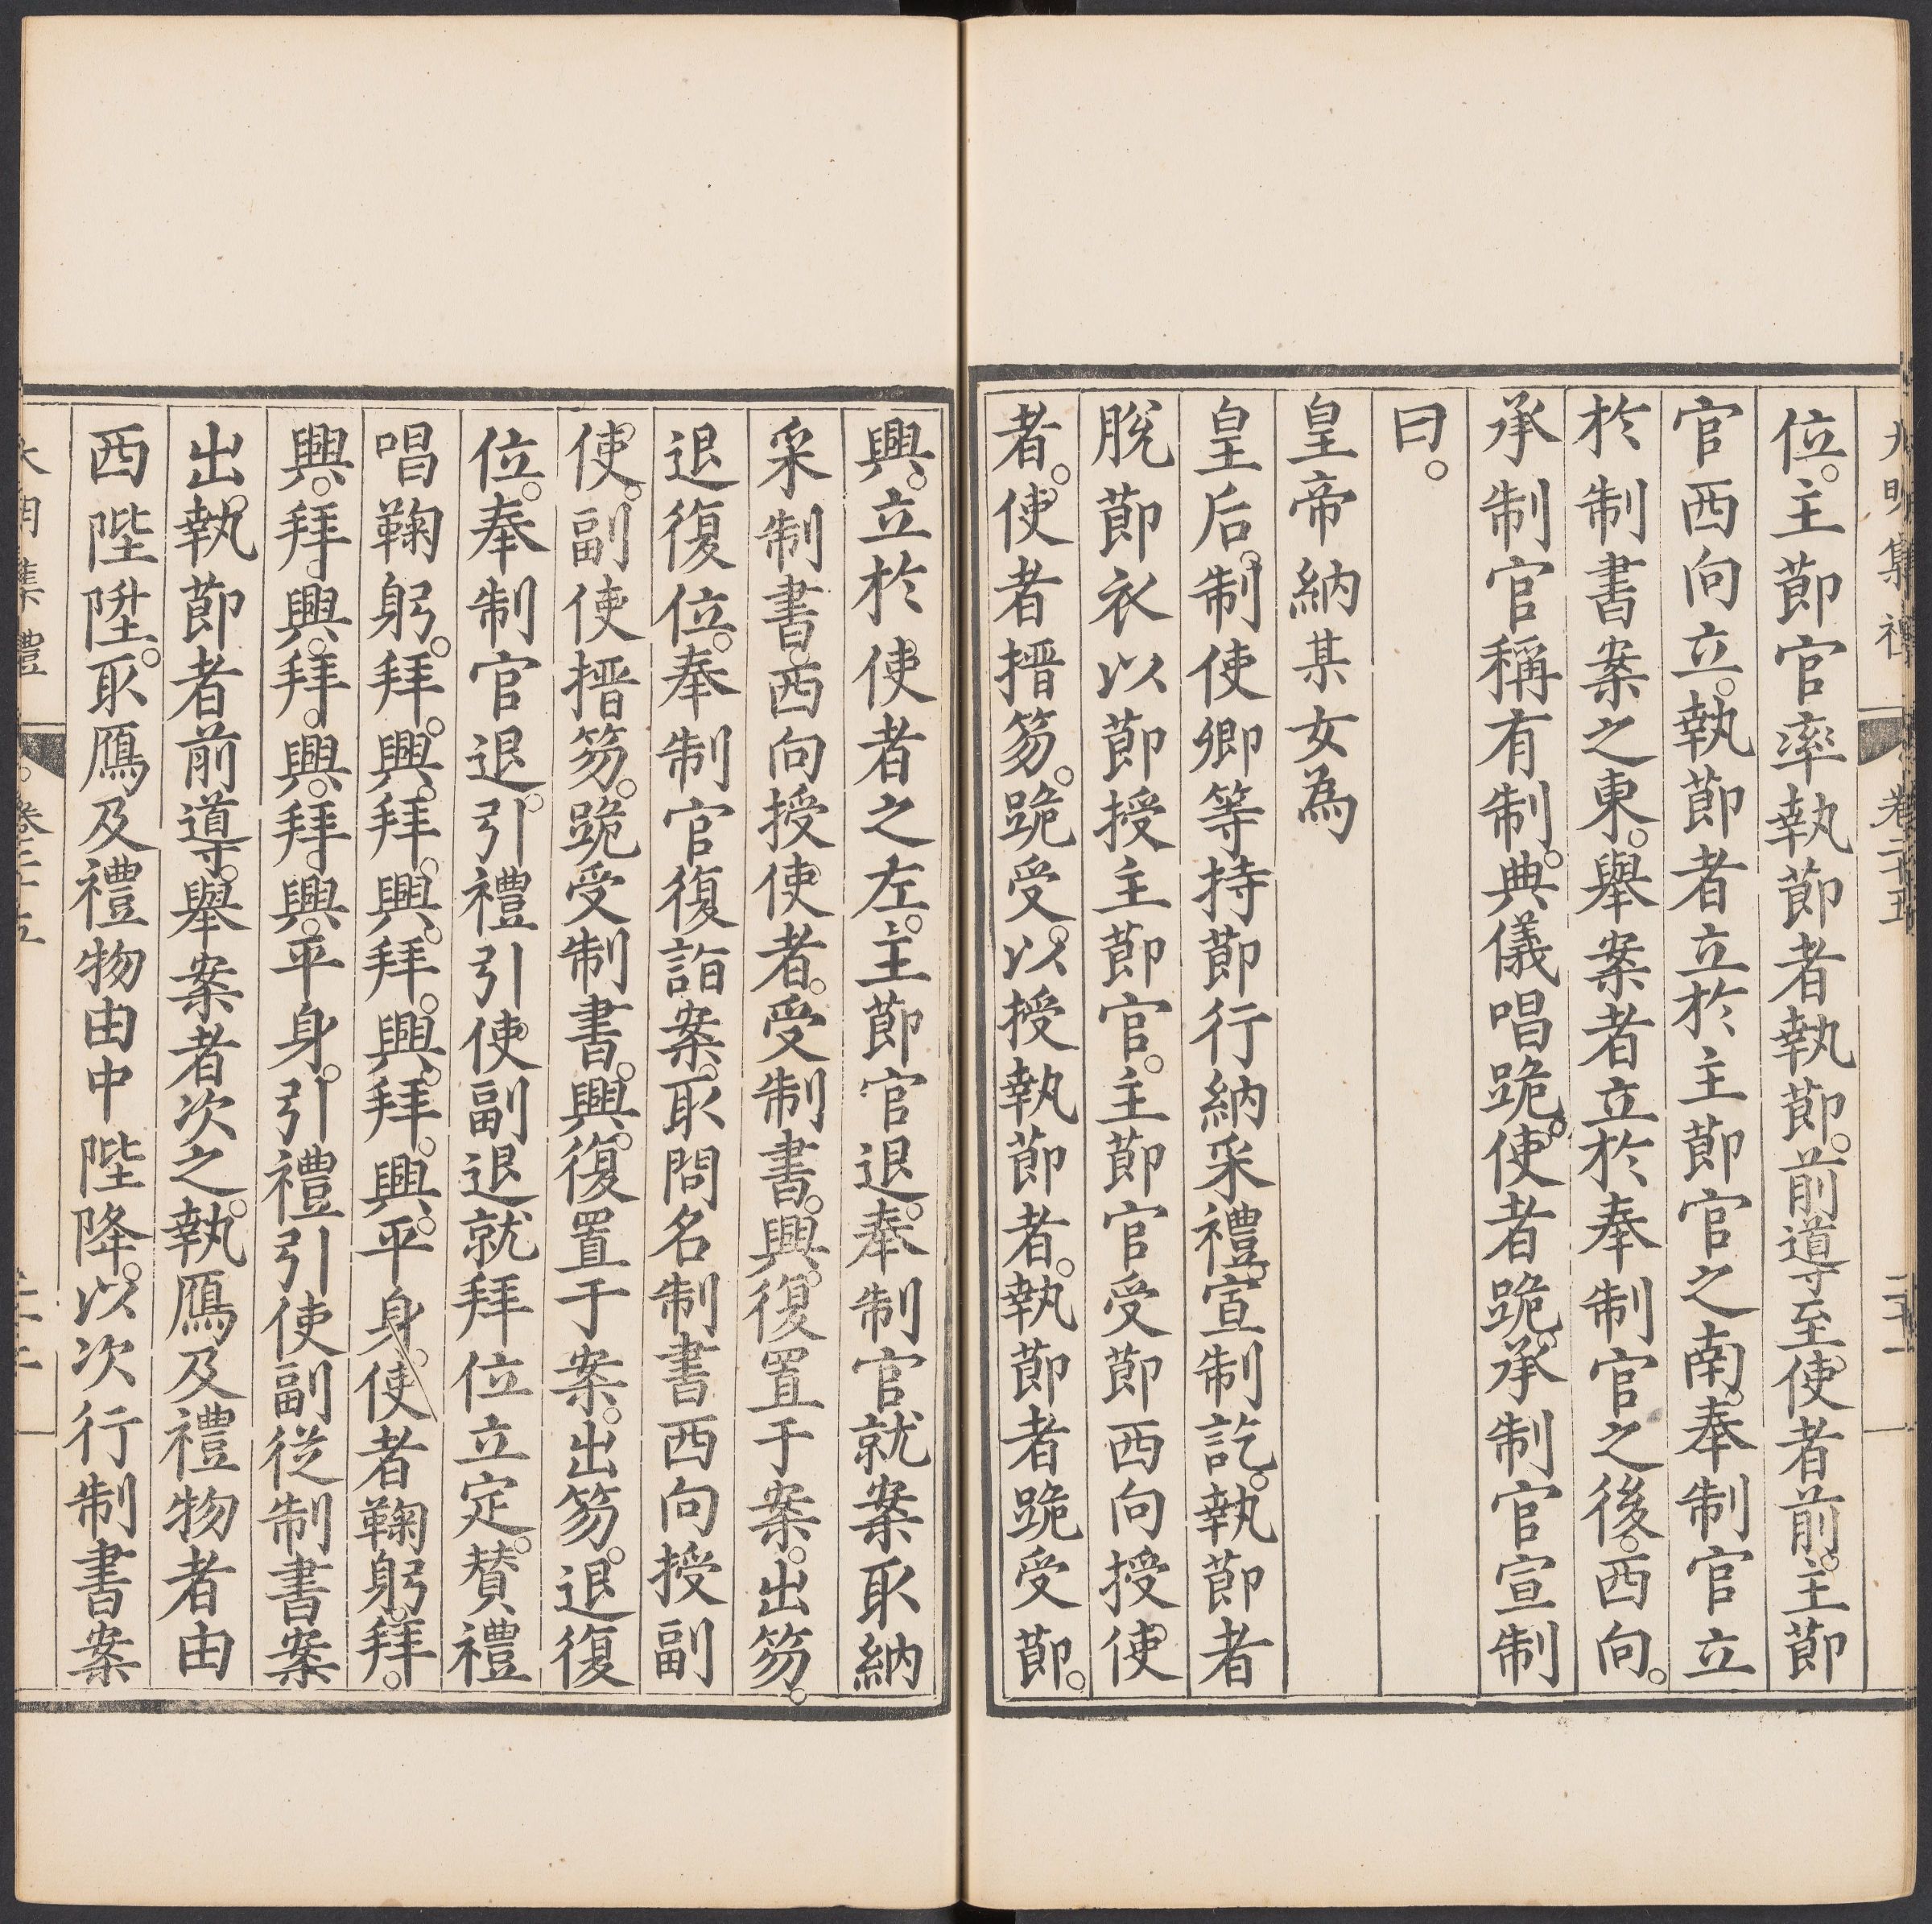 大明集禮 卷二十五 二十一
位。主節官率執節者執節。前導至使者前。主節
官西向立。執節者立於主節官之南。奉制官立
於制書案之東。舉案者立於奉制官之後。西向。
承制官稱有制。典儀唱跪。使者跪。承制官宣制
曰。
皇帝納某女為
皇后。制使卿等持節行納采禮。宣制訖。執節者
脫節衣以節授主節官。主節官受節西向授使
者。使者搢笏。跪受。以授執節者。執節者跪受節。
興。立於使者之左。主節官退。奉制官就案取納
采制書。西向授使者。受制書。興。復置于案。出笏。
退復位。奉制官復詣案。取問名制書西向授副
使。副使搢笏。跪受制書。興。復置于案。出笏。退復
位。奉制官退。引禮引使副退就拜位立定。贊禮
唱鞠躬。拜。興。拜。興。拜。興。拜。興。平身。使者鞠躬。拜。
興。拜。興。拜。興。拜。興。平身。引禮引使副從制書案
出。執節者前導。舉案者次之。執鴈及禮物者由
西陛陞。取鴈及禮物由中陛降。以次行制書案
大明集禮 卷二十五